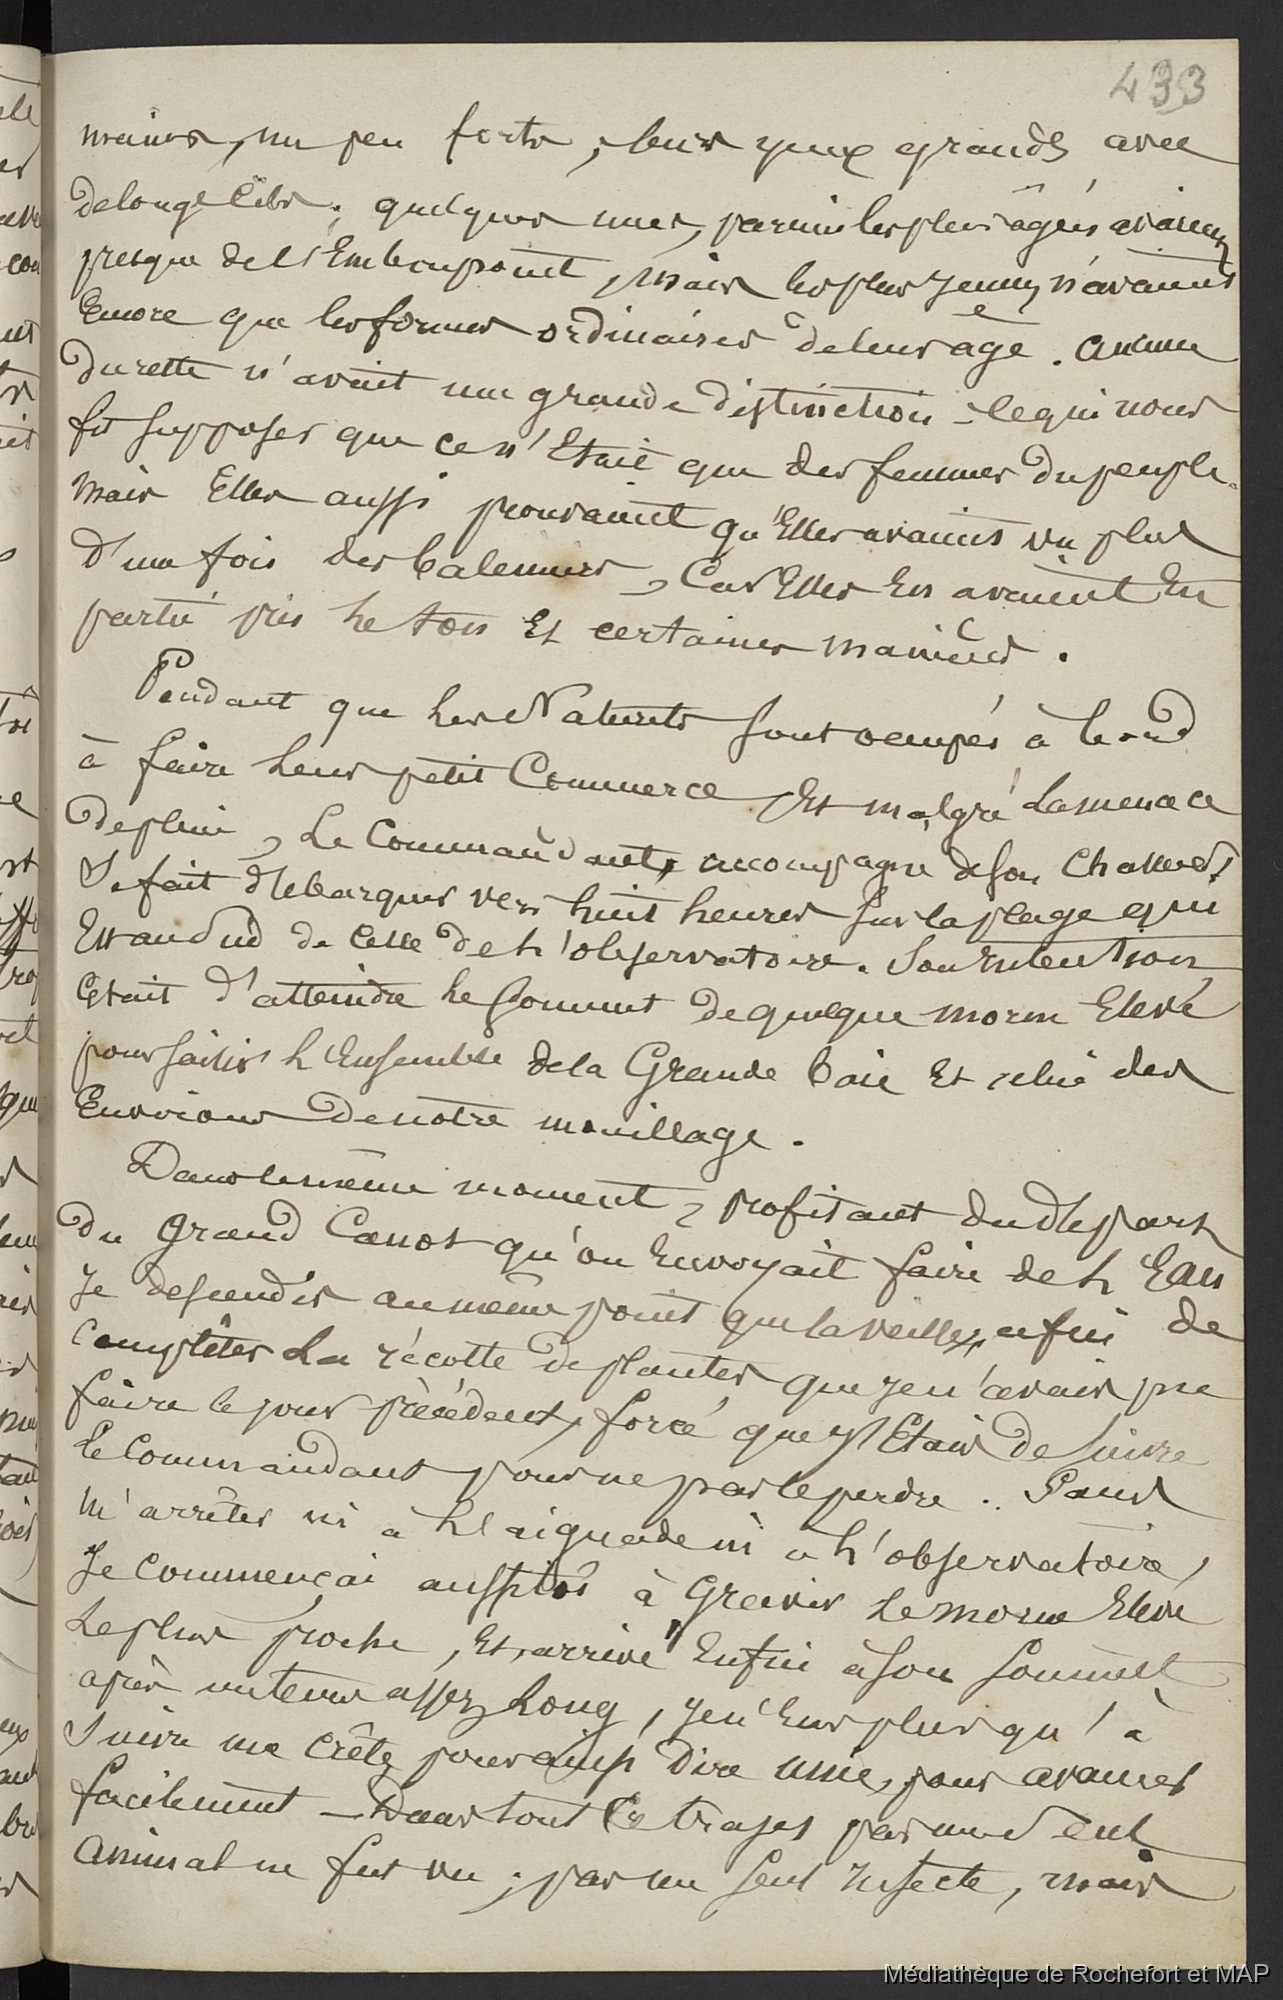 433
mains, un peu forts, leurs yeux grands avec
de longs cils ; quelques unes, parmi les plus âgées avaient
presque de l'Embonpoint, mais les plus jeunes n'avaient
Encore que les formes ordinaires de leur âge. aucune
du reste n'avait une grande distinction - ce qui nous
fit supposer que ce n'Etait que des femmes du peuple.
Mais Elles aussi prouvaient qu'Elles avaient vu plus
d'une fois des baleiniers, Car Elles En avaient En
partie pris le ton Et certaines manières.
Pendant que les Naturels sont occupés à bord
à faire leur petit Commerce, Et malgré la menace
de pluie, Le Commandant, accompagné de son Chasseur,
Se fait débarquer vers huit heures sur la plage qui
Est au Sud de Celle de l'observatoire. Son intention
Etait d'atteindre le Sommet de quelque morne Elevé
pour saisir l'Ensemble de la Grande baie Et celui des
Environs de notre mouillage.
Dans le même moment, profitant du départ
du grand Canot qu'on Envoyait faire de l'Eau
Je descendis au même point que la veille, afin de
complêter La récolte de plantes que je n'avais pu
faire le jour précédent, forcé que j'Etais de suivre
Le Commandant pour ne pas le perdre.. Sans
m'arrêter ni à l'aiguade ni à l'observatoire,
Je commençai aussitôt à Gravir le morne Elevé
Le plus proche, Et, arrivé Enfin à son sommet
après un tems assez Long, je n'Eus plus qu'à
Suivre une crête pour ainsi dire unie, pour avancer
facilement - Dans tout Ce trajet pas un Seul
animal ne fut vu ; pas un seul insecte, mais
Médiathèque de Rochefort et MAP